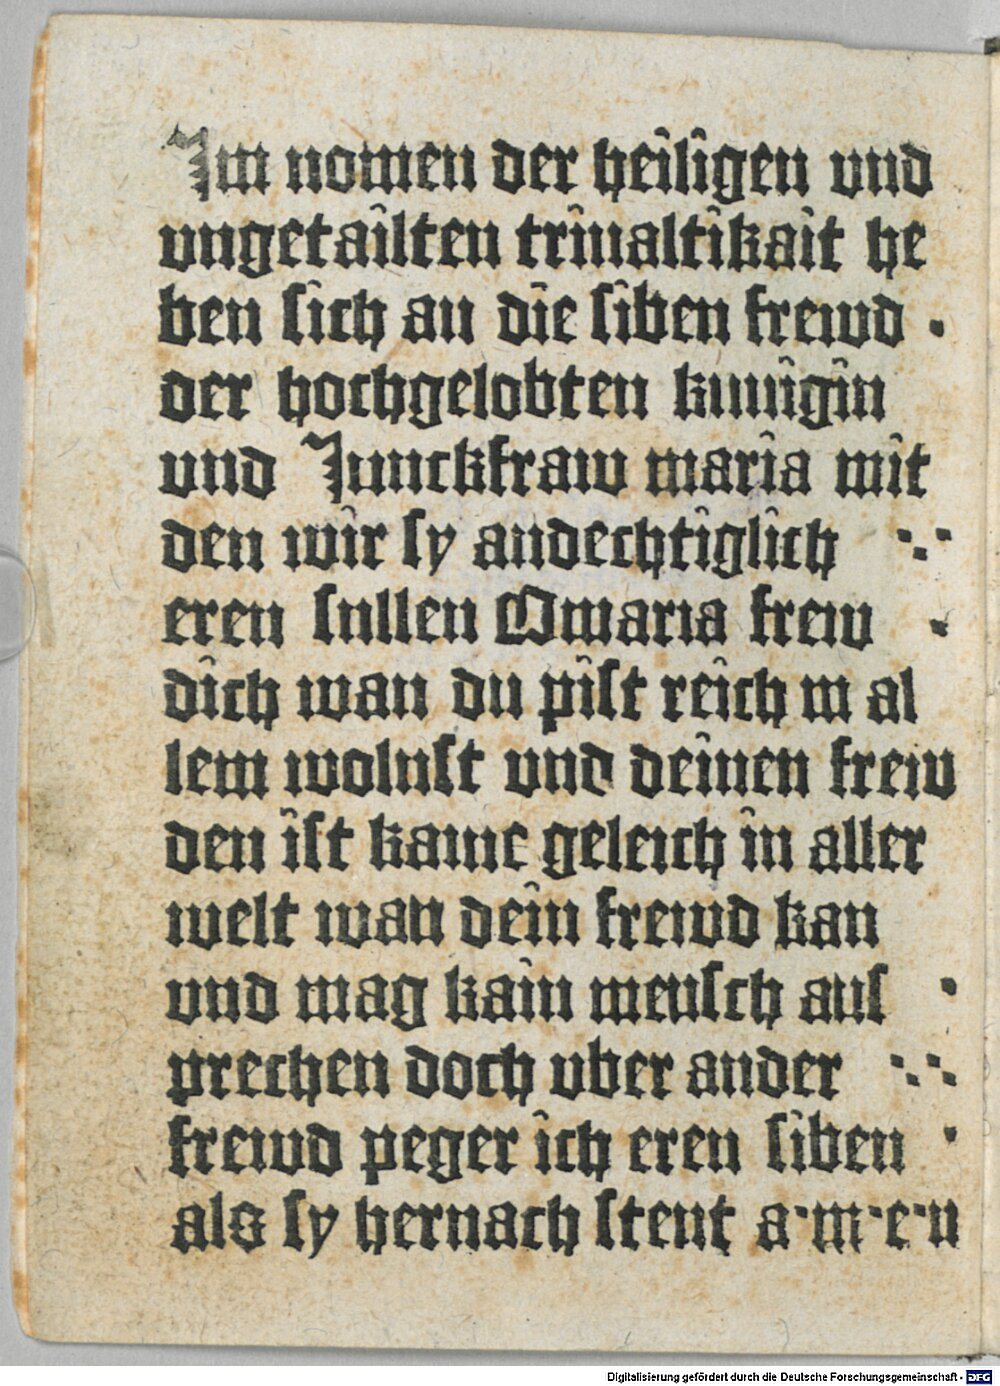 Im nomen der heiligen vnd
vngetailten triualtikait he
ben sich an die siben frewd ·
der hochgelobten kunigin
vnd Junckfraw maria mit
den wir sy andechtiglich
eren sullen O maria frew ·
dich wan du pist reich in al
lem wolust vnd deinen frew
den ist kaine geleich in aller
welt wan dein frewd kan
vnd mag kain mensch aus ·
prechen doch vber ander
frewd peger ich eren siben ·
als sy hernach stent a·m·e·n
Digitalisierung gefördert durch die Deutsche Forschungsgemeinschaft - DFG